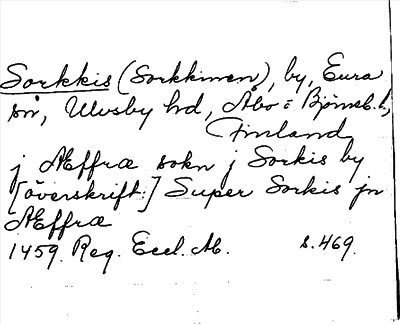 Sorkkis (Sorkkinen), by, Eura
sn, Ulvsby hd, Åbo o Björneb. l,
Finland
j Æffræ sokn j Sorkis by
[överskrift:] Super Sorkis jn
Æffræ
1459. Reg. Eccl. Ab. s. 469.